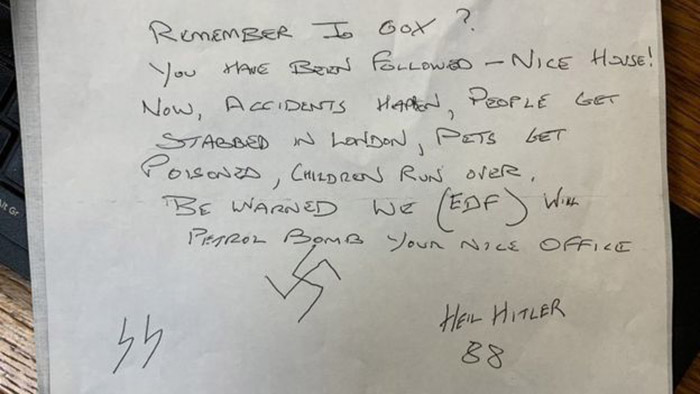 REMEMBER JO COX?
YOU HAVE BEEN FOLLOWED – NICE HOUSE!
NOW, ACCIDENTS HAPPEN, PEOPLE GET
STABBED IN LONDON, PETS GET
POISONED, CHILDREN RUN OVER.
BE WARNED WE (EDF) WILL
PETROL BOMB YOUR NICE OFFICE
HEIL HITLER
88
Alt Gr